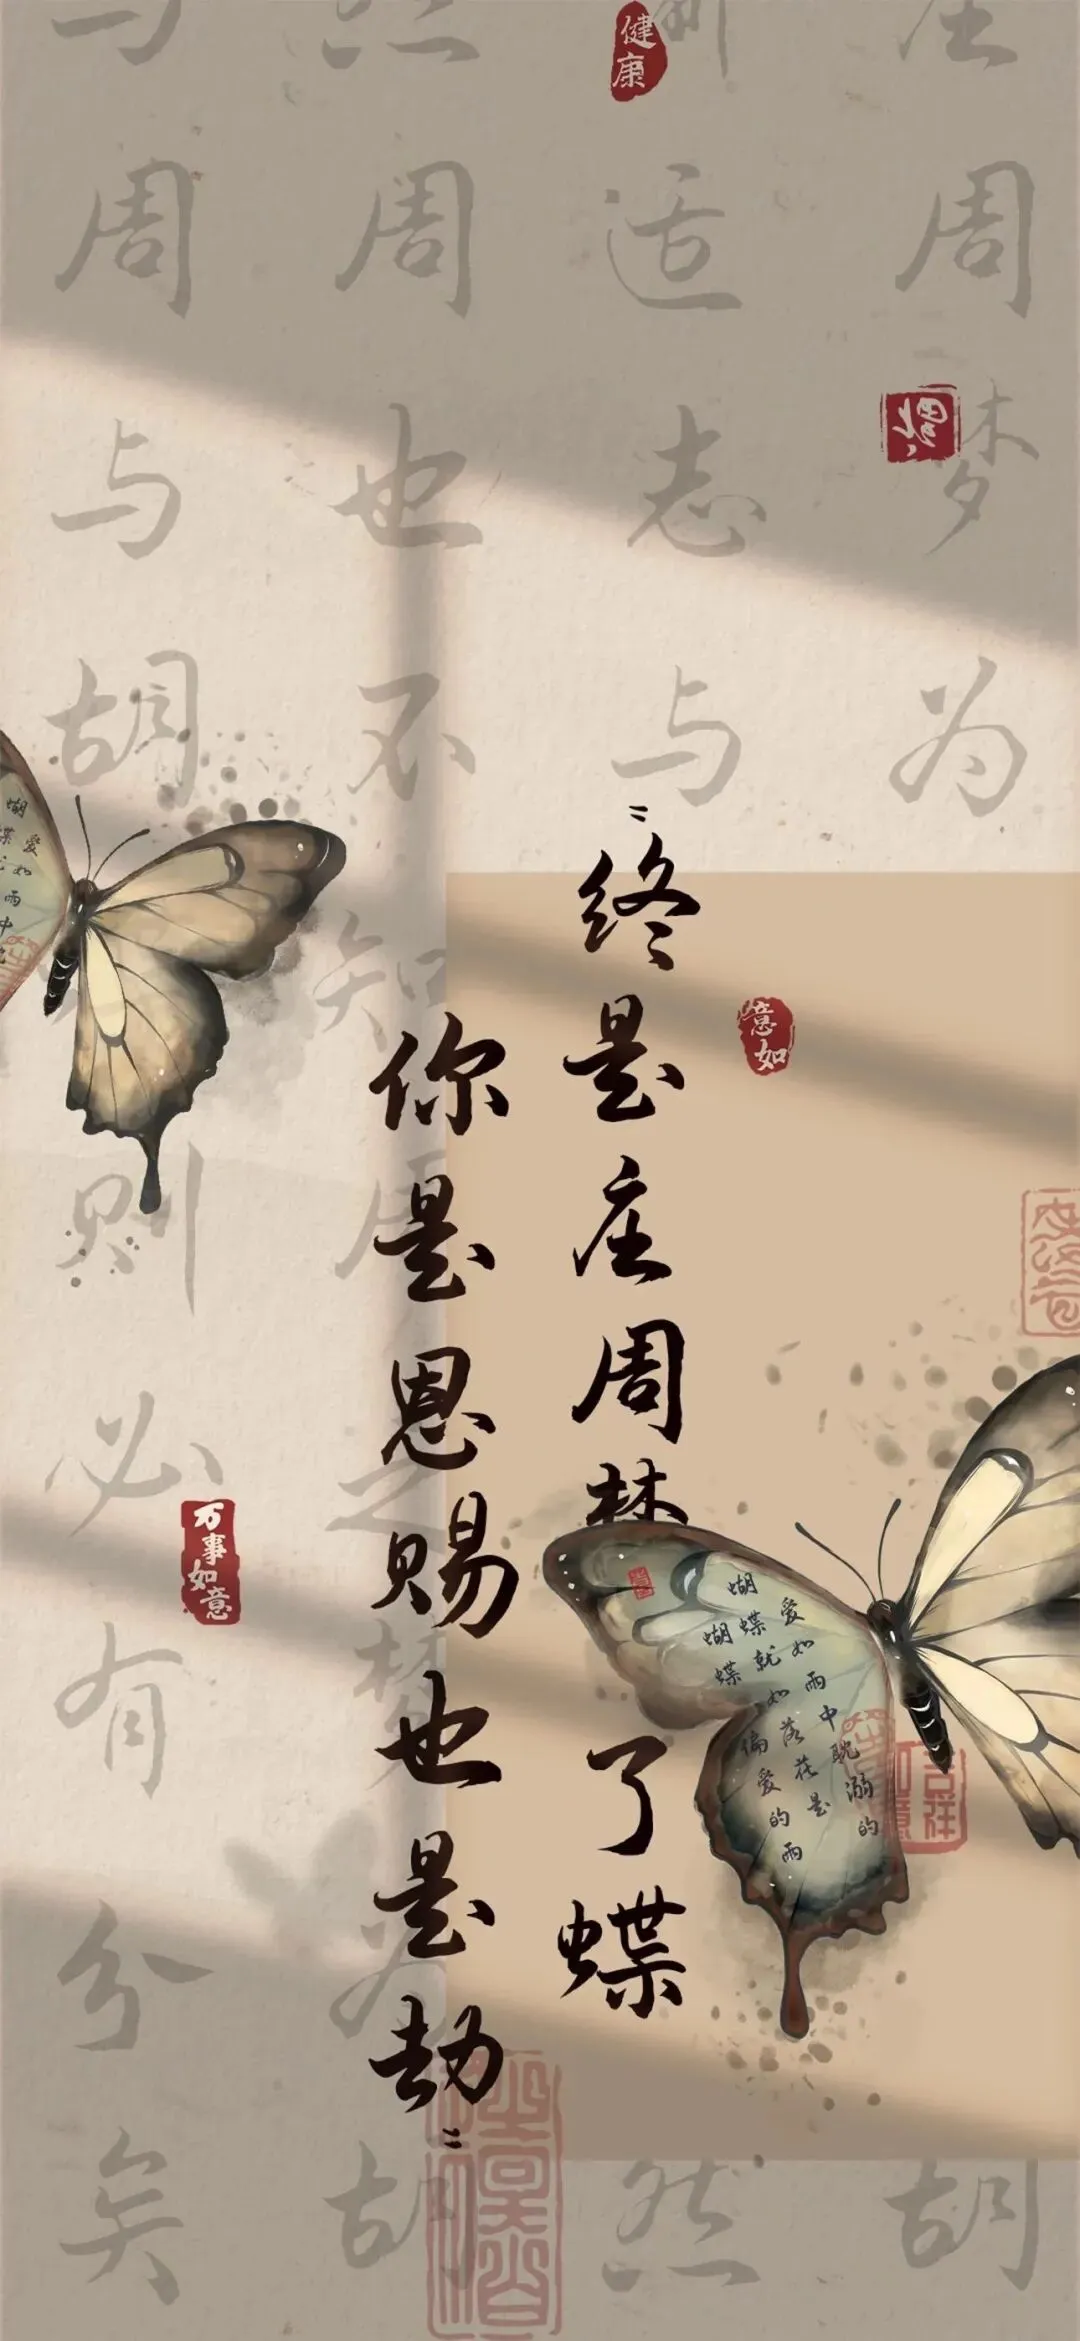 健康
终是庄周梦了蝶
你是恩赐也是劫
意如
万事如意
爱如雨中耽溺的
蝴蝶就如落花是
蝴蝶偏爱的雨
吉祥
周梦为
胡
适志与
然
周也不知
周之梦
胡
周与胡
则必有分矣